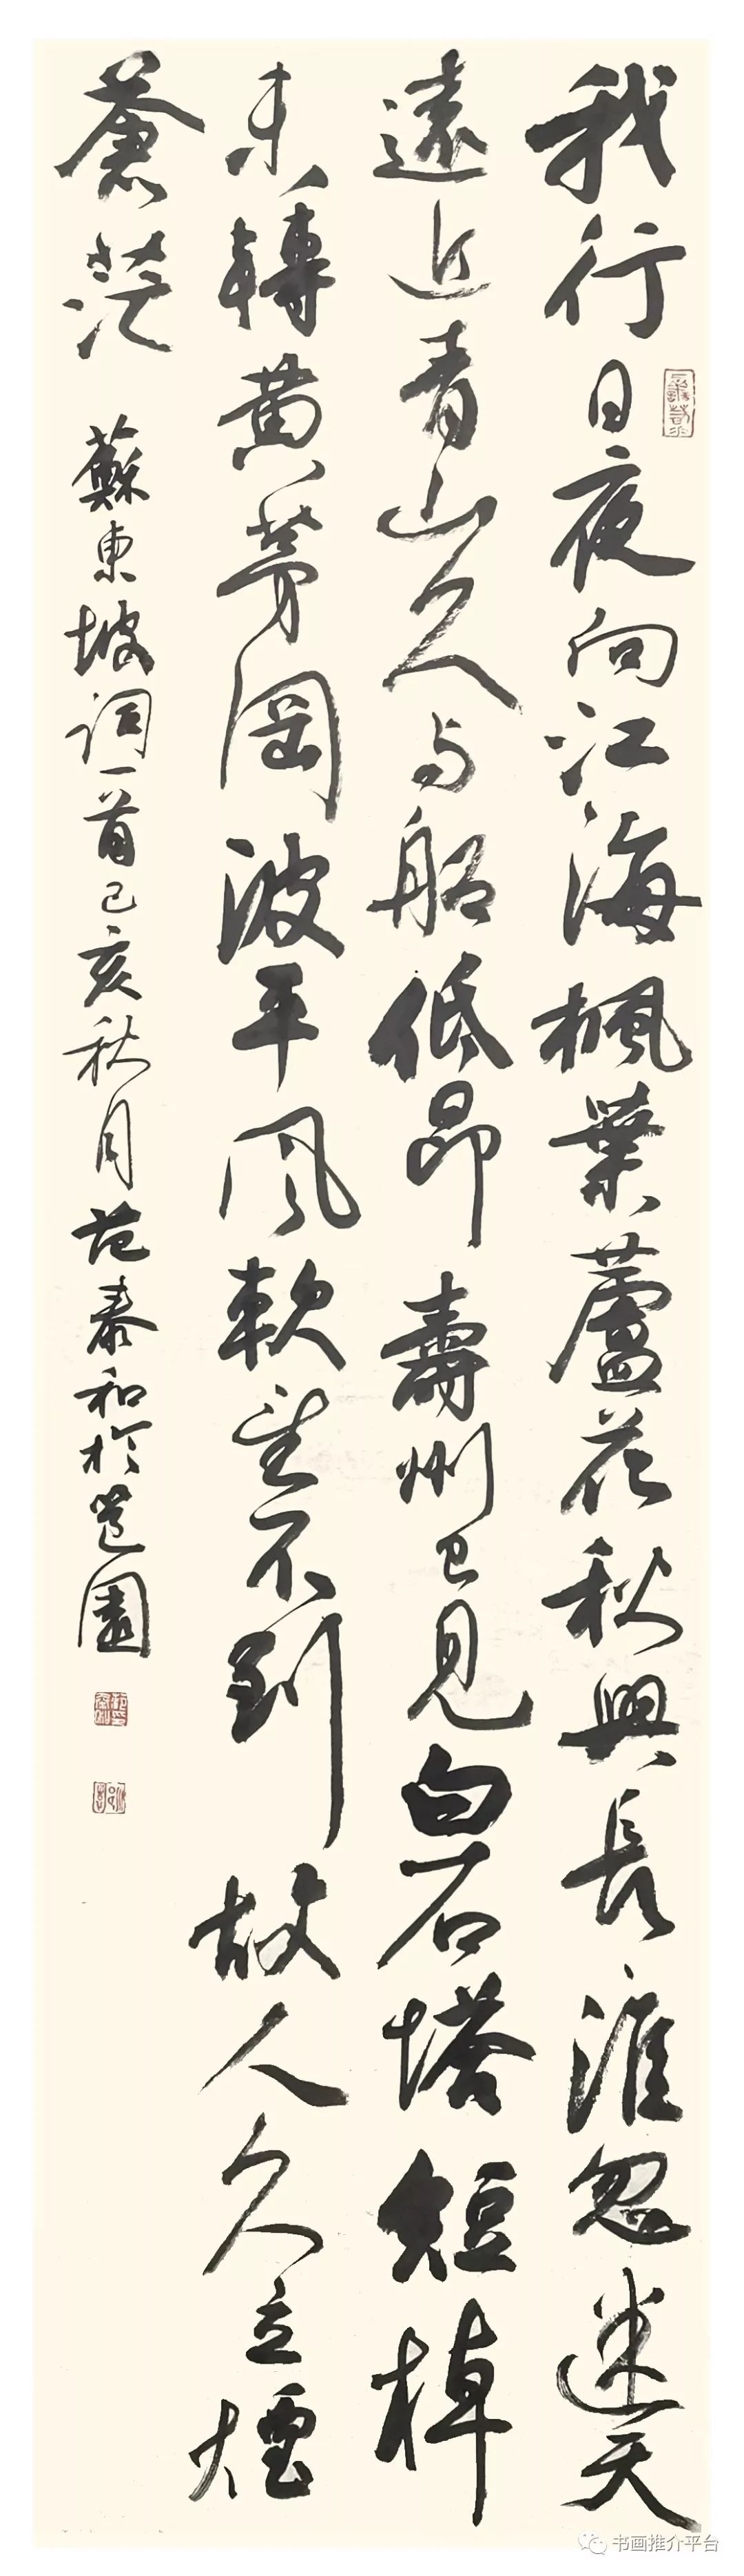 我行日夜向江海楓葉蘆花秋興長淮忽迷天
遠近青山久与船低昂壽州已見白石塔短棹
未轉黄茅岡波平風軟望不到故人久立煙
蒼茫 蘇東坡詞一首己亥秋月范泰和於園
书画推介平台